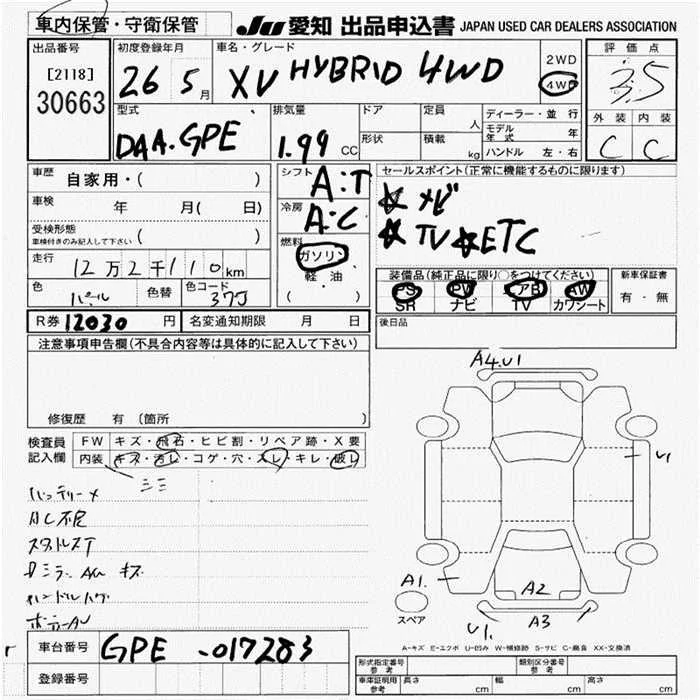 車内保管・守衛保管
JU 愛知 出品申込書 JAPAN USED CAR DEALERS ASSOCIATION
出品番号
[2118]
30663
初度登録年月
26 5月
車名・グレード
XV HYBRID 4WD
2WD
4WD
評価点
3.5
外装 内装
C C
型式
DAA.GPE
排気量
1.99 CC
ドア
形状
定員 人
積載 kg
ディーラー・並行
モデル年式 年
ハンドル 左・右
車歴 自家用・( )
車検 年 月( 日)
受検形態
車検付きのみ記入して下さい ( )
走行 12万2千110km
色 パール 色替 色コード 37J
R券 12030 円 名変通知期限 月 日
シフト A:T
冷房 A:C
燃料
ガソリン
軽・油
( )
セールスポイント(正常に機能するものに限ります)
☆ナビ
☆TV ☆ETC
装備品(純正品に限り○をつけてください)
PS PW エアB AW
SR ナビ TV カワシート
新車保証書
有・無
後日品
注意事項申告欄(不具合内容等は具体的に記入して下さい)
修復歴 有 (箇所 )
検査員記入欄
FW キズ・飛石・ヒビ割・リペア跡・X要
内装 キズ・汚レ・コゲ・穴・スレ・キレ・破レ
バッテリーメ
スタットレスT
ハンドルハゲ
A4.U1
U1
A1.
A2
A3
U1.
スペア
A-キズ E-エクボ U-凹み W-補修跡 S-サビ C-腐食 XX-交換済
車台番号 GPE -017283
登録番号
形式指定番号
参考
類別区分番号
参考
車庫証明用
参考
長さ cm 幅 cm 高さ cm